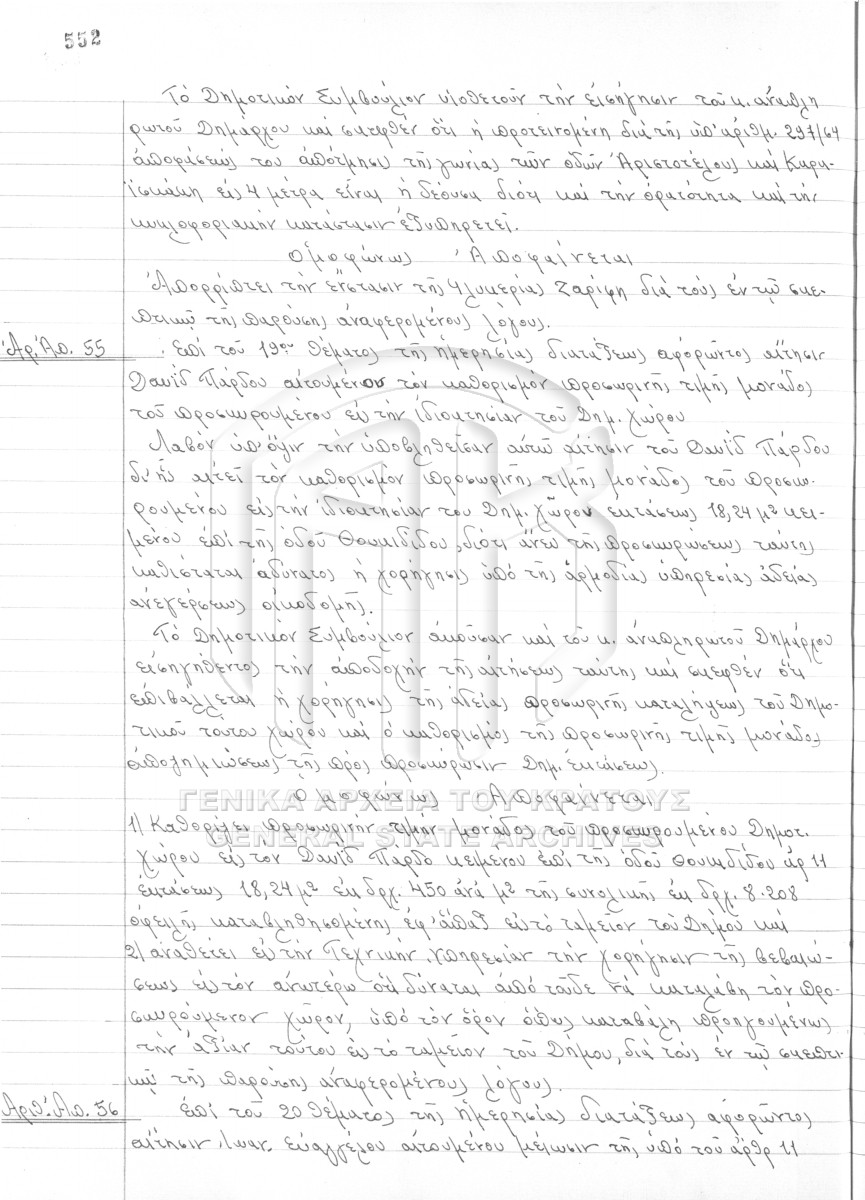 552
Τὸ Δημοτικὸν Συμβούλιον υἱοθετοῦν τὴν εἰσήγησιν τοῦ κ. ἀναπλη
ρωτοῦ Δημάρχου καὶ σκεφθὲν ὅτι ἡ προτεινομένη διὰ τῆς ὑπ' ἀριθμ. 297/64
ἀποφάσεώς του ἀπότμησις τῆς γωνίας τῶν ὁδῶν Ἀριστοτέλους καὶ Καρα-
ϊσκάκη εἰς 4 μέτρα εἶναι ἡ δέουσα διότι καὶ τὴν ὁρατότητα καὶ τὴν
κυκλοφοριακὴν κατάστασιν ἐξυπηρετεῖ.
Ὁμοφώνως Ἀποφαίνεται
Ἀπορρίπτει τὴν ἔνστασιν τῆς Γλυκερίας Ζαρίφη διὰ τοὺς ἐν τῷ σκε-
πτικῷ τῆς παρούσης ἀναφερομένους λόγους.
Ἀρ. Ἀπ. 55
Ἐπὶ τοῦ 19ου θέματος τῆς ἡμερησίας διατάξεως ἀφορῶντος αἴτησιν
Δαυὶδ Πάρδου αἰτουμένου τὸν καθορισμὸν προσωρινῆς τιμῆς μονάδος
τοῦ προσκυρουμένου εἰς τὴν ἰδιοκτησίαν του Δημ. χώρου
Λαβὸν ὑπ' ὄψιν τὴν ὑποβληθεῖσαν αὐτῷ αἴτησιν τοῦ Δαυὶδ Πάρδου
δι' ἧς αἰτεῖ τὸν καθορισμὸν προσωρινῆς τιμῆς μονάδος τοῦ προσκυ-
ρουμένου εἰς τὴν ἰδιοκτησίαν του Δημ. χώρου ἐκτάσεως 18,24 μ² κει-
μένου ἐπὶ τῆς ὁδοῦ Θουκιδίδου, διότι ἄνευ τῆς προσκυρώσεως ταύτης
καθίσταται ἀδύνατος ἡ χορήγησις ὑπὸ τῆς ἁρμοδίας ὑπηρεσίας ἀδείας
ἀνεγέρσεως οἰκοδομῆς.
Τὸ Δημοτικὸν Συμβούλιον ἀκοῦσαν καὶ τοῦ κ. ἀναπληρωτοῦ Δημάρχου
εἰσηγηθέντος τὴν ἀποδοχὴν τῆς αἰτήσεως ταύτης καὶ σκεφθὲν ὅτι
ἐπιβάλλεται ἡ χορήγησις τῆς ἀδείας προσωρινῆς καταλήψεως τοῦ Δημο-
τικοῦ τούτου χώρου καὶ ὁ καθορισμὸς τῆς προσωρινῆς τιμῆς μονάδος
ἀποζημιώσεως τῆς πρὸς προσκύρωσιν Δημ. ἐκτάσεως.
Ὁμοφώνως Ἀποφαίνεται
ΓΕΝΙΚΑ ΑΡΧΕΙΑ ΤΟΥ ΚΡΑΤΟΥΣ
GENERAL STATE ARCHIVES
1) Καθορίζει προσωρινὴν τιμὴν μονάδος τοῦ προσκυρουμένου Δημοτ.
χώρου εἰς τὸν Δαυὶδ Πάρδο κειμένου ἐπὶ τῆς ὁδοῦ Θουκιδίδου ἀρ 11
ἐκτάσεως 18,24 μ² ἐκ δρχ. 450 ἀνὰ μ² τῆς συνολικῆς ἐκ δρχ. 8.208
ὀφειλῆς καταβληθησομένης ἐφ' ἅπαξ εἰς τὸ ταμεῖον τοῦ Δήμου καὶ
2) ἀναθέτει εἰς τὴν Τεχνικὴν Ὑπηρεσίαν τὴν χορήγησιν τῆς βεβαιώ-
σεως εἰς τὸν ἀνωτέρω ὅτι δύναται ἀπὸ τοῦδε νὰ καταλάβῃ τὸν προ-
σκυρούμενον χῶρον, ὑπὸ τὸν ὅρον ὅπως καταβάλῃ προηγουμένως
τὴν ἀξίαν τούτου εἰς τὸ ταμεῖον τοῦ Δήμου, διὰ τοὺς ἐν τῷ σκεπτι-
κῷ τῆς παρούσης ἀναφερομένους λόγους.
Ἀριθ. Ἀπ. 56
Ἐπὶ τοῦ 20 θέματος τῆς ἡμερησίας διατάξεως ἀφορῶντος
αἴτησιν Ἰωαν. Εὐαγγέλου αἰτουμένου μείωσιν τῆς ὑπὸ τοῦ ἄρθρ 11